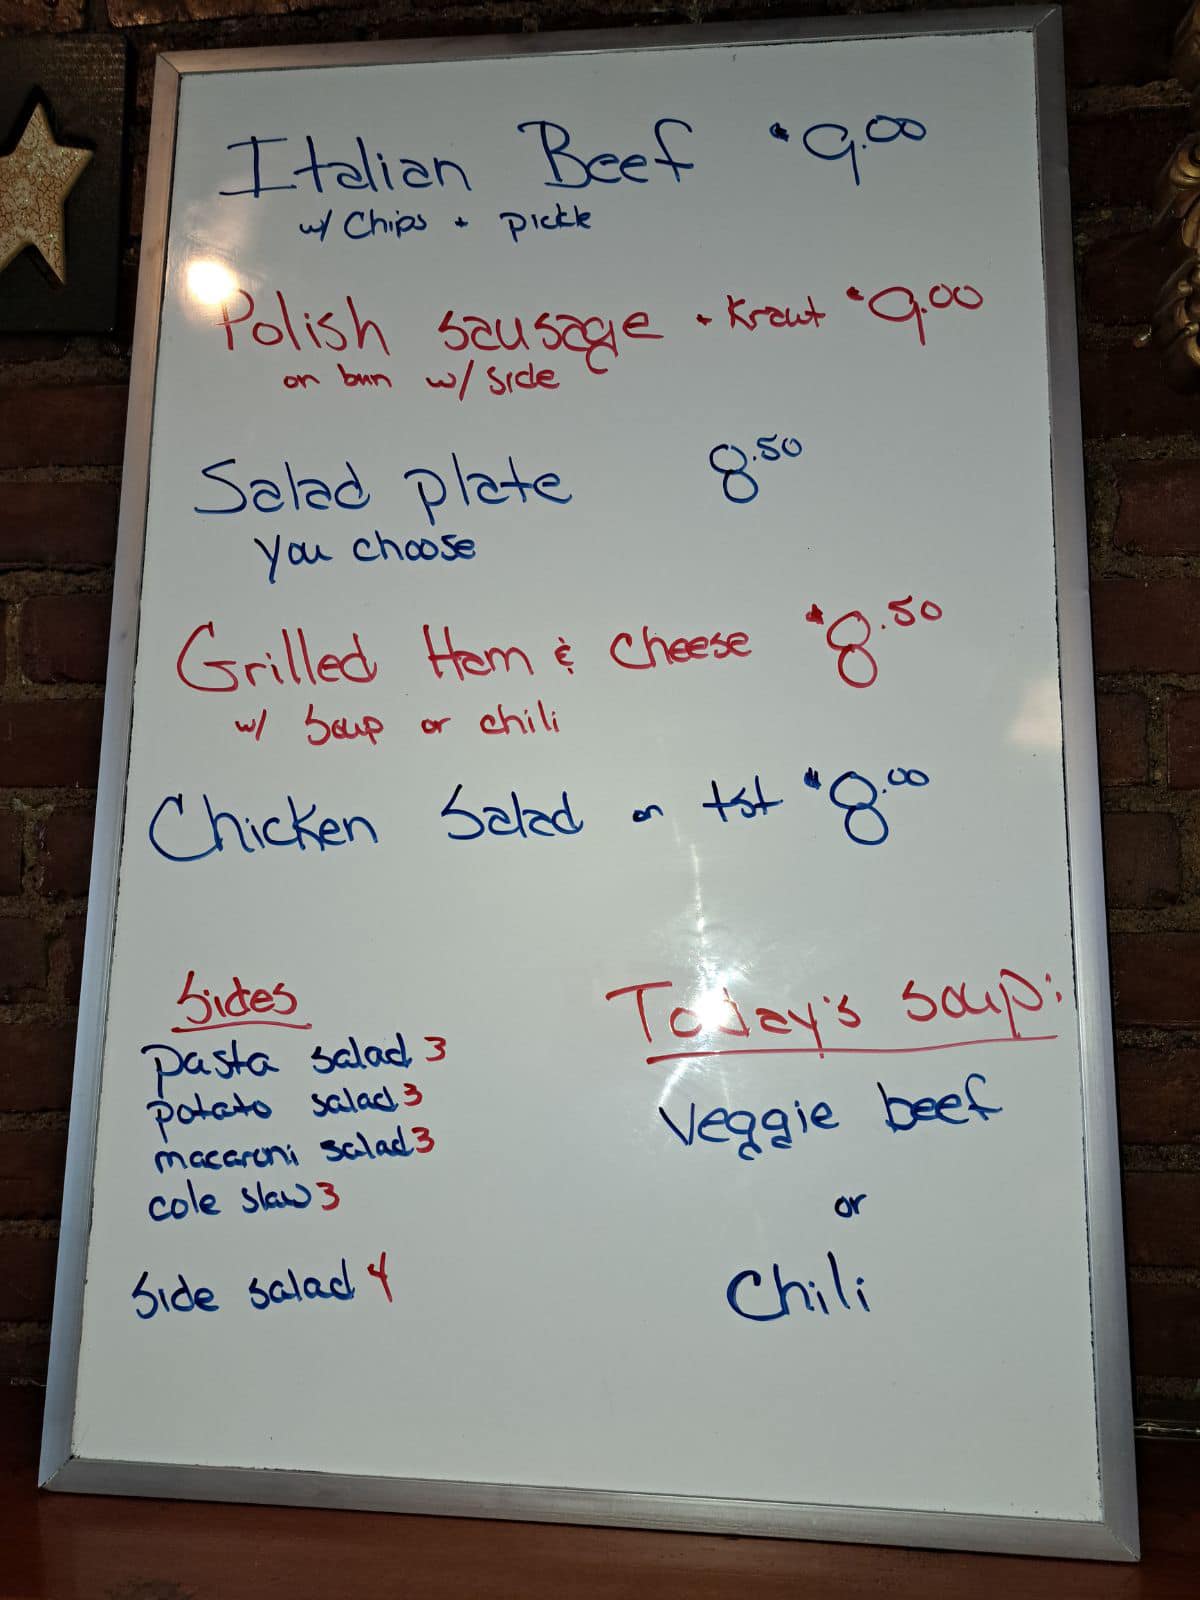 Italian Beef $9.00
w/ Chips + pickle
Polish sausage + Kraut $9.00
on bun w/ side
Salad plate 8.50
you choose
Grilled Ham & Cheese $8.50
w/ Soup or chili
Chicken Salad on tst $8.00
Sides
pasta salad 3
potato salad 3
macaroni salad 3
cole slaw 3
Side salad 4
Today's soup:
Veggie beef
or
Chili